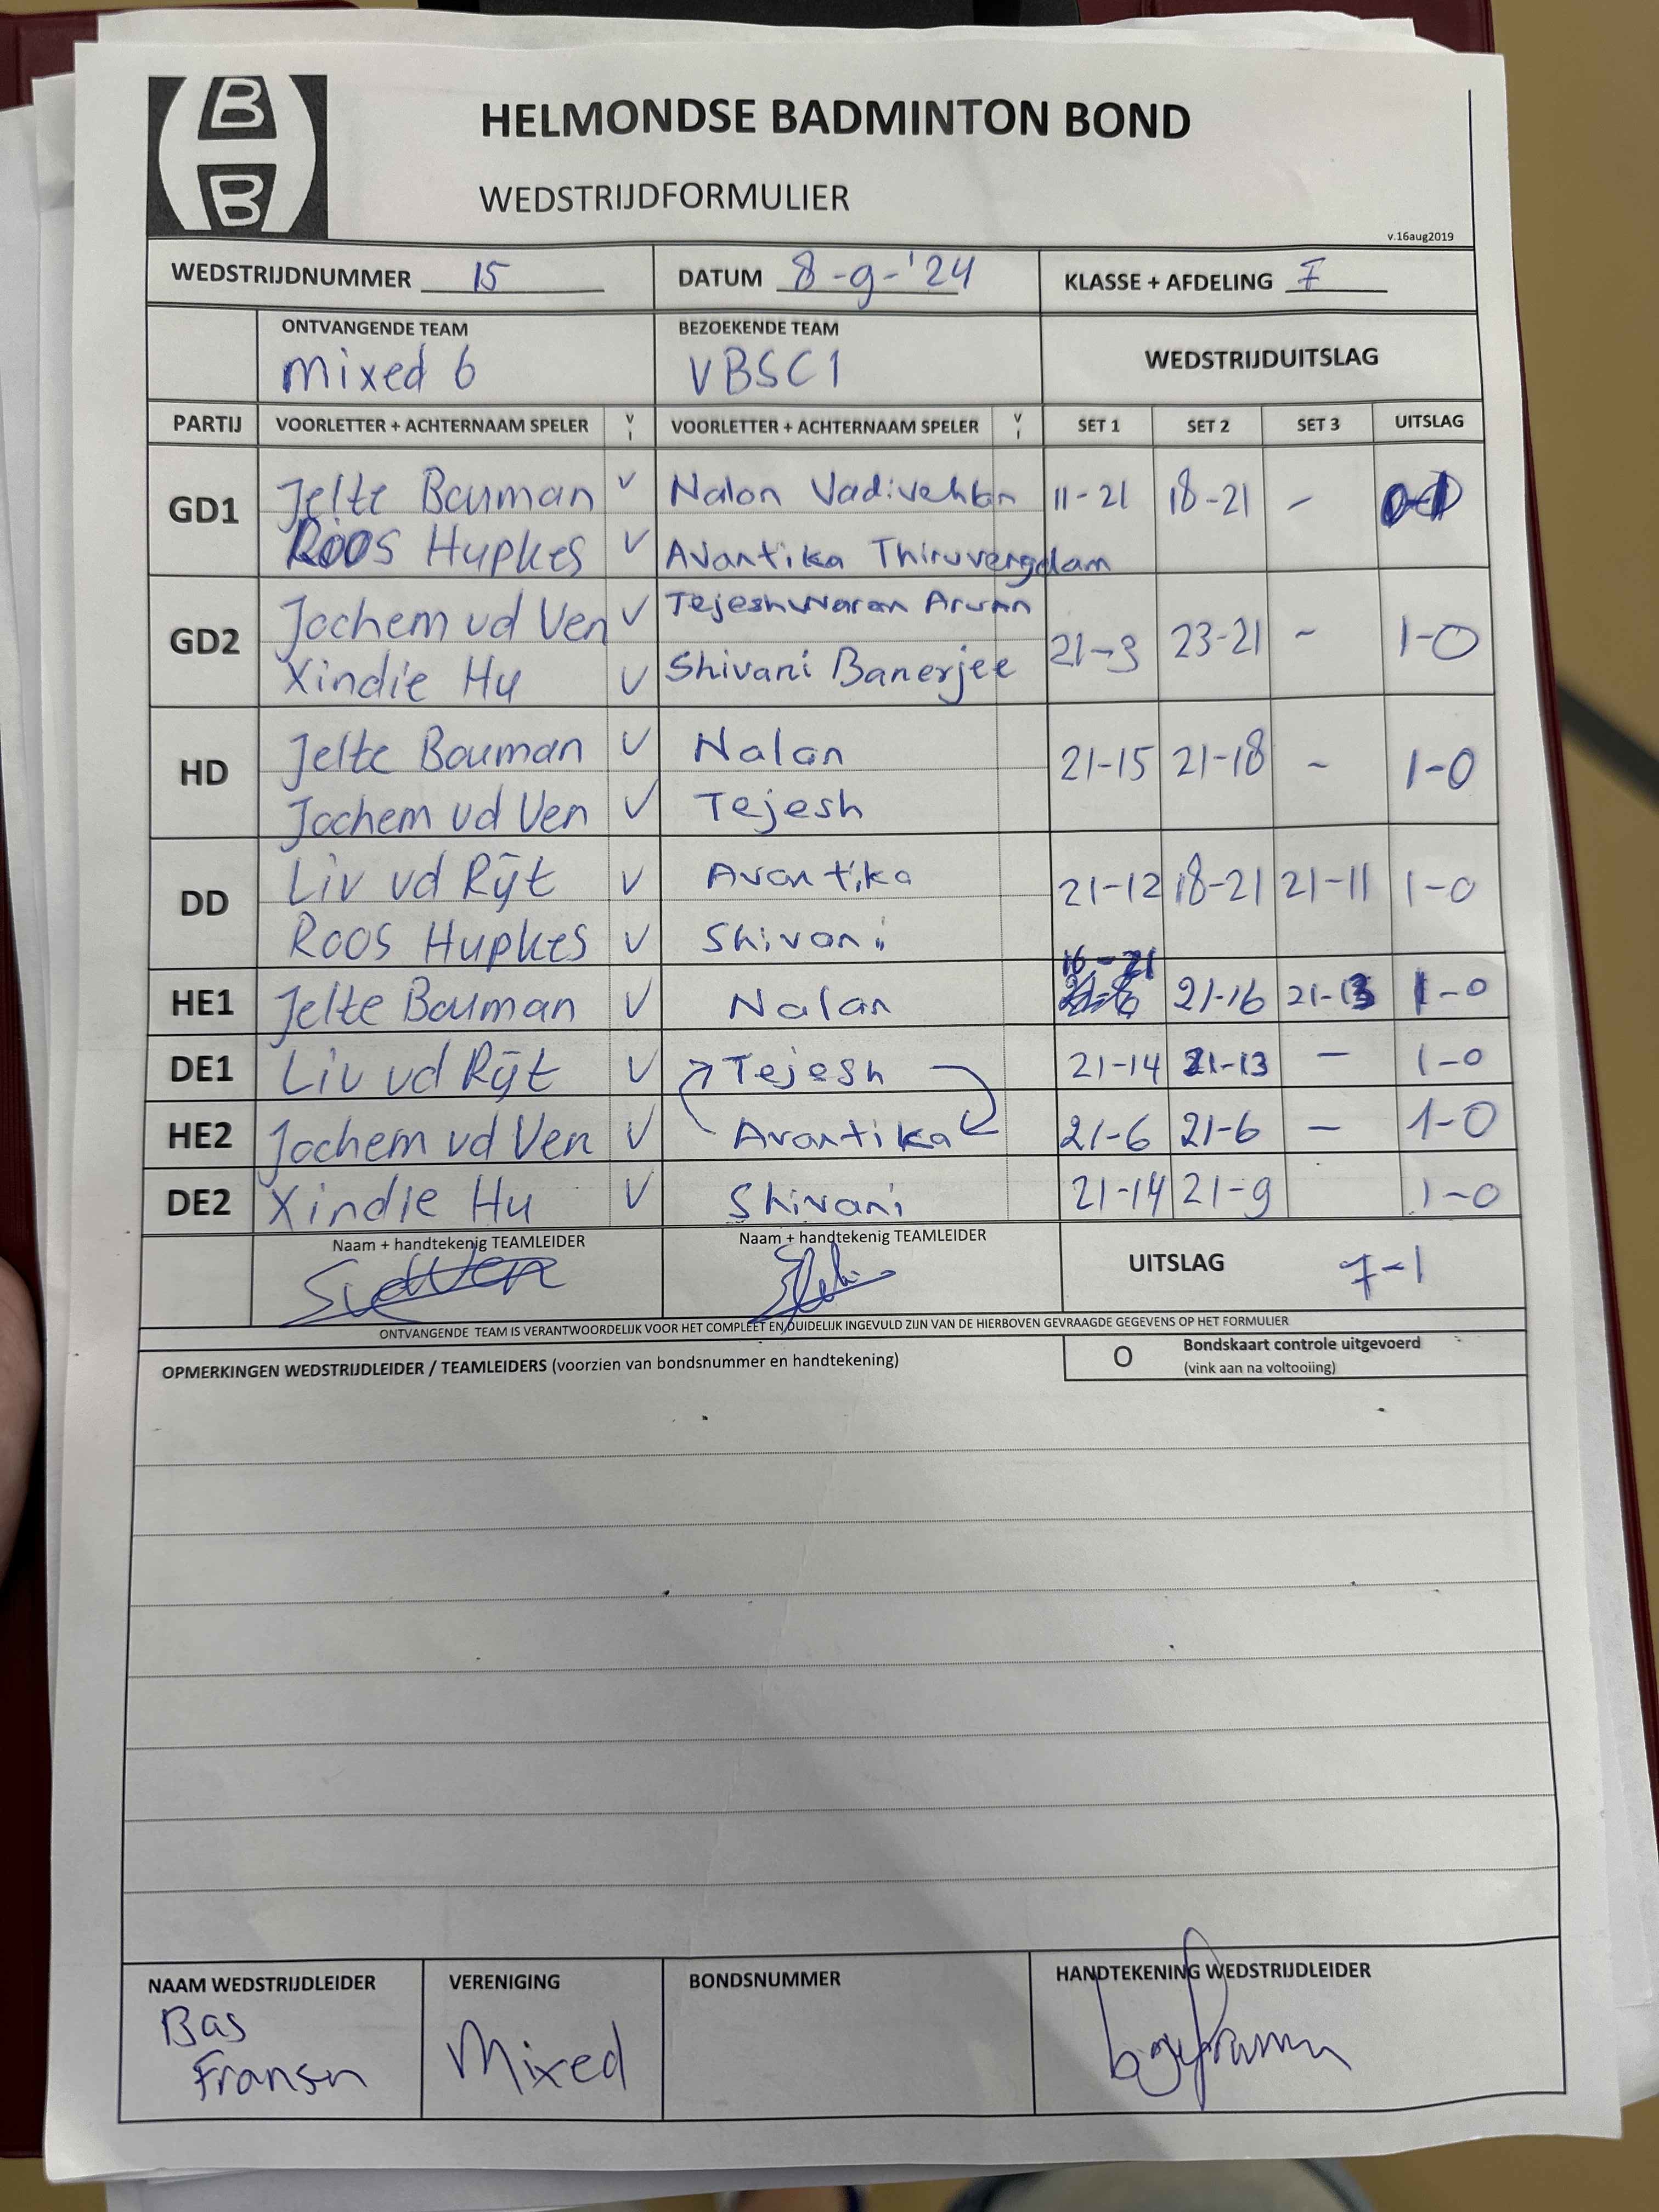 B
B
HELMONDSE BADMINTON BOND
WEDSTRIJDFORMULIER
v.16aug2019
WEDSTRIJDNUMMER 15 DATUM 8-9-'24 KLASSE + AFDELING 7
ONTVANGENDE TEAM BEZOEKENDE TEAM WEDSTRIJDUITSLAG
Mixed 6 VBSC1
PARTIJ VOORLETTER + ACHTERNAAM SPELER V I VOORLETTER + ACHTERNAAM SPELER V I SET 1 SET 2 SET 3 UITSLAG
GD1 Jelte Bouman V Nalan 11-21 18-21 - 0-1
Roos Hupkes V Avantika Thiruvengdam
GD2 Jochem vd Ven V Tejeshwaran 21-9 23-21 - 1-0
Xindie Hu V Shivani Banerjee
HD Jelte Bouman V Nalan 21-15 21-18 - 1-0
Jochem vd Ven V Tejesh
DD Liv vd Rijt V Avantika 21-12 18-21 21-11 1-0
Roos Hupkes V Shivani
16-21
HE1 Jelte Bouman V Nalan 21-16 21-13 1-0
DE1 Liv vd Rijt V Tejesh 21-14 21-13 - 1-0
HE2 Jochem vd Ven V Avantika 21-6 21-6 - 1-0
DE2 Xindie Hu V Shivani 21-14 21-9 1-0
Naam + handtekenig TEAMLEIDER Naam + handtekenig TEAMLEIDER UITSLAG 7-1
ONTVANGENDE TEAM IS VERANTWOORDELIJK VOOR HET COMPLEET EN DUIDELIJK INGEVULD ZIJN VAN DE HIERBOVEN GEVRAAGDE GEGEVENS OP HET FORMULIER
OPMERKINGEN WEDSTRIJDLEIDER / TEAMLEIDERS (voorzien van bondsnummer en handtekening) O Bondskaart controle uitgevoerd
(vink aan na voltooiing)
NAAM WEDSTRIJDLEIDER VERENIGING BONDSNUMMER HANDTEKENING WEDSTRIJDLEIDER
Bas Mixed
Fransn